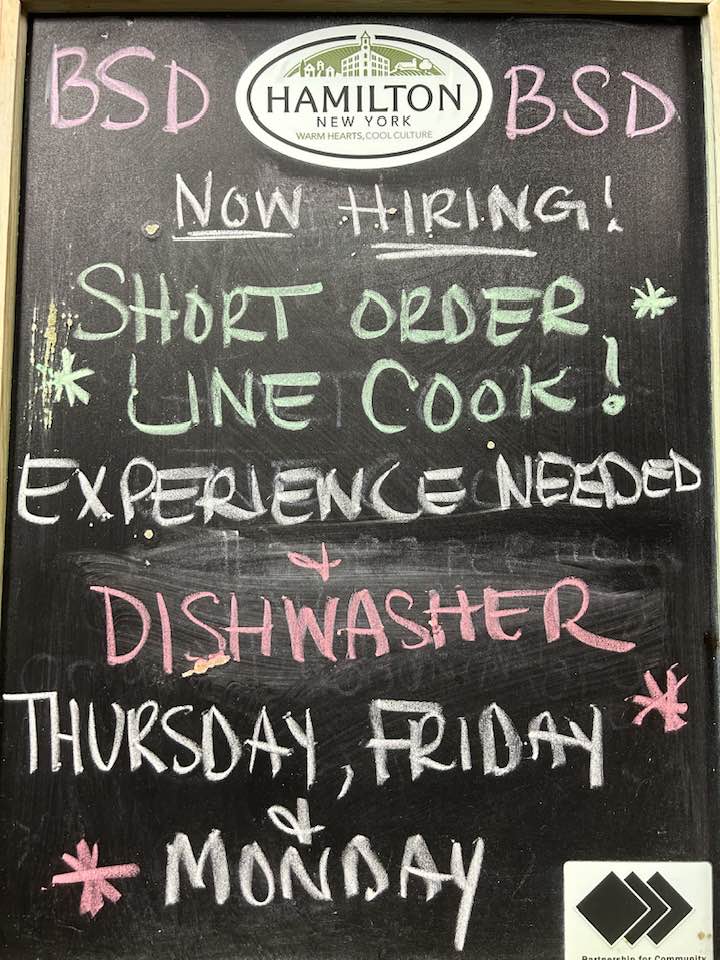 BSD HAMILTON BSD
NEW YORK
WARM HEARTS, COOL CULTURE
NOW HIRING!
SHORT ORDER *
* LINE COOK!
EXPERIENCE NEEDED
&
DISHWASHER
THURSDAY, FRIDAY *
&
* MONDAY
Partnership for Community